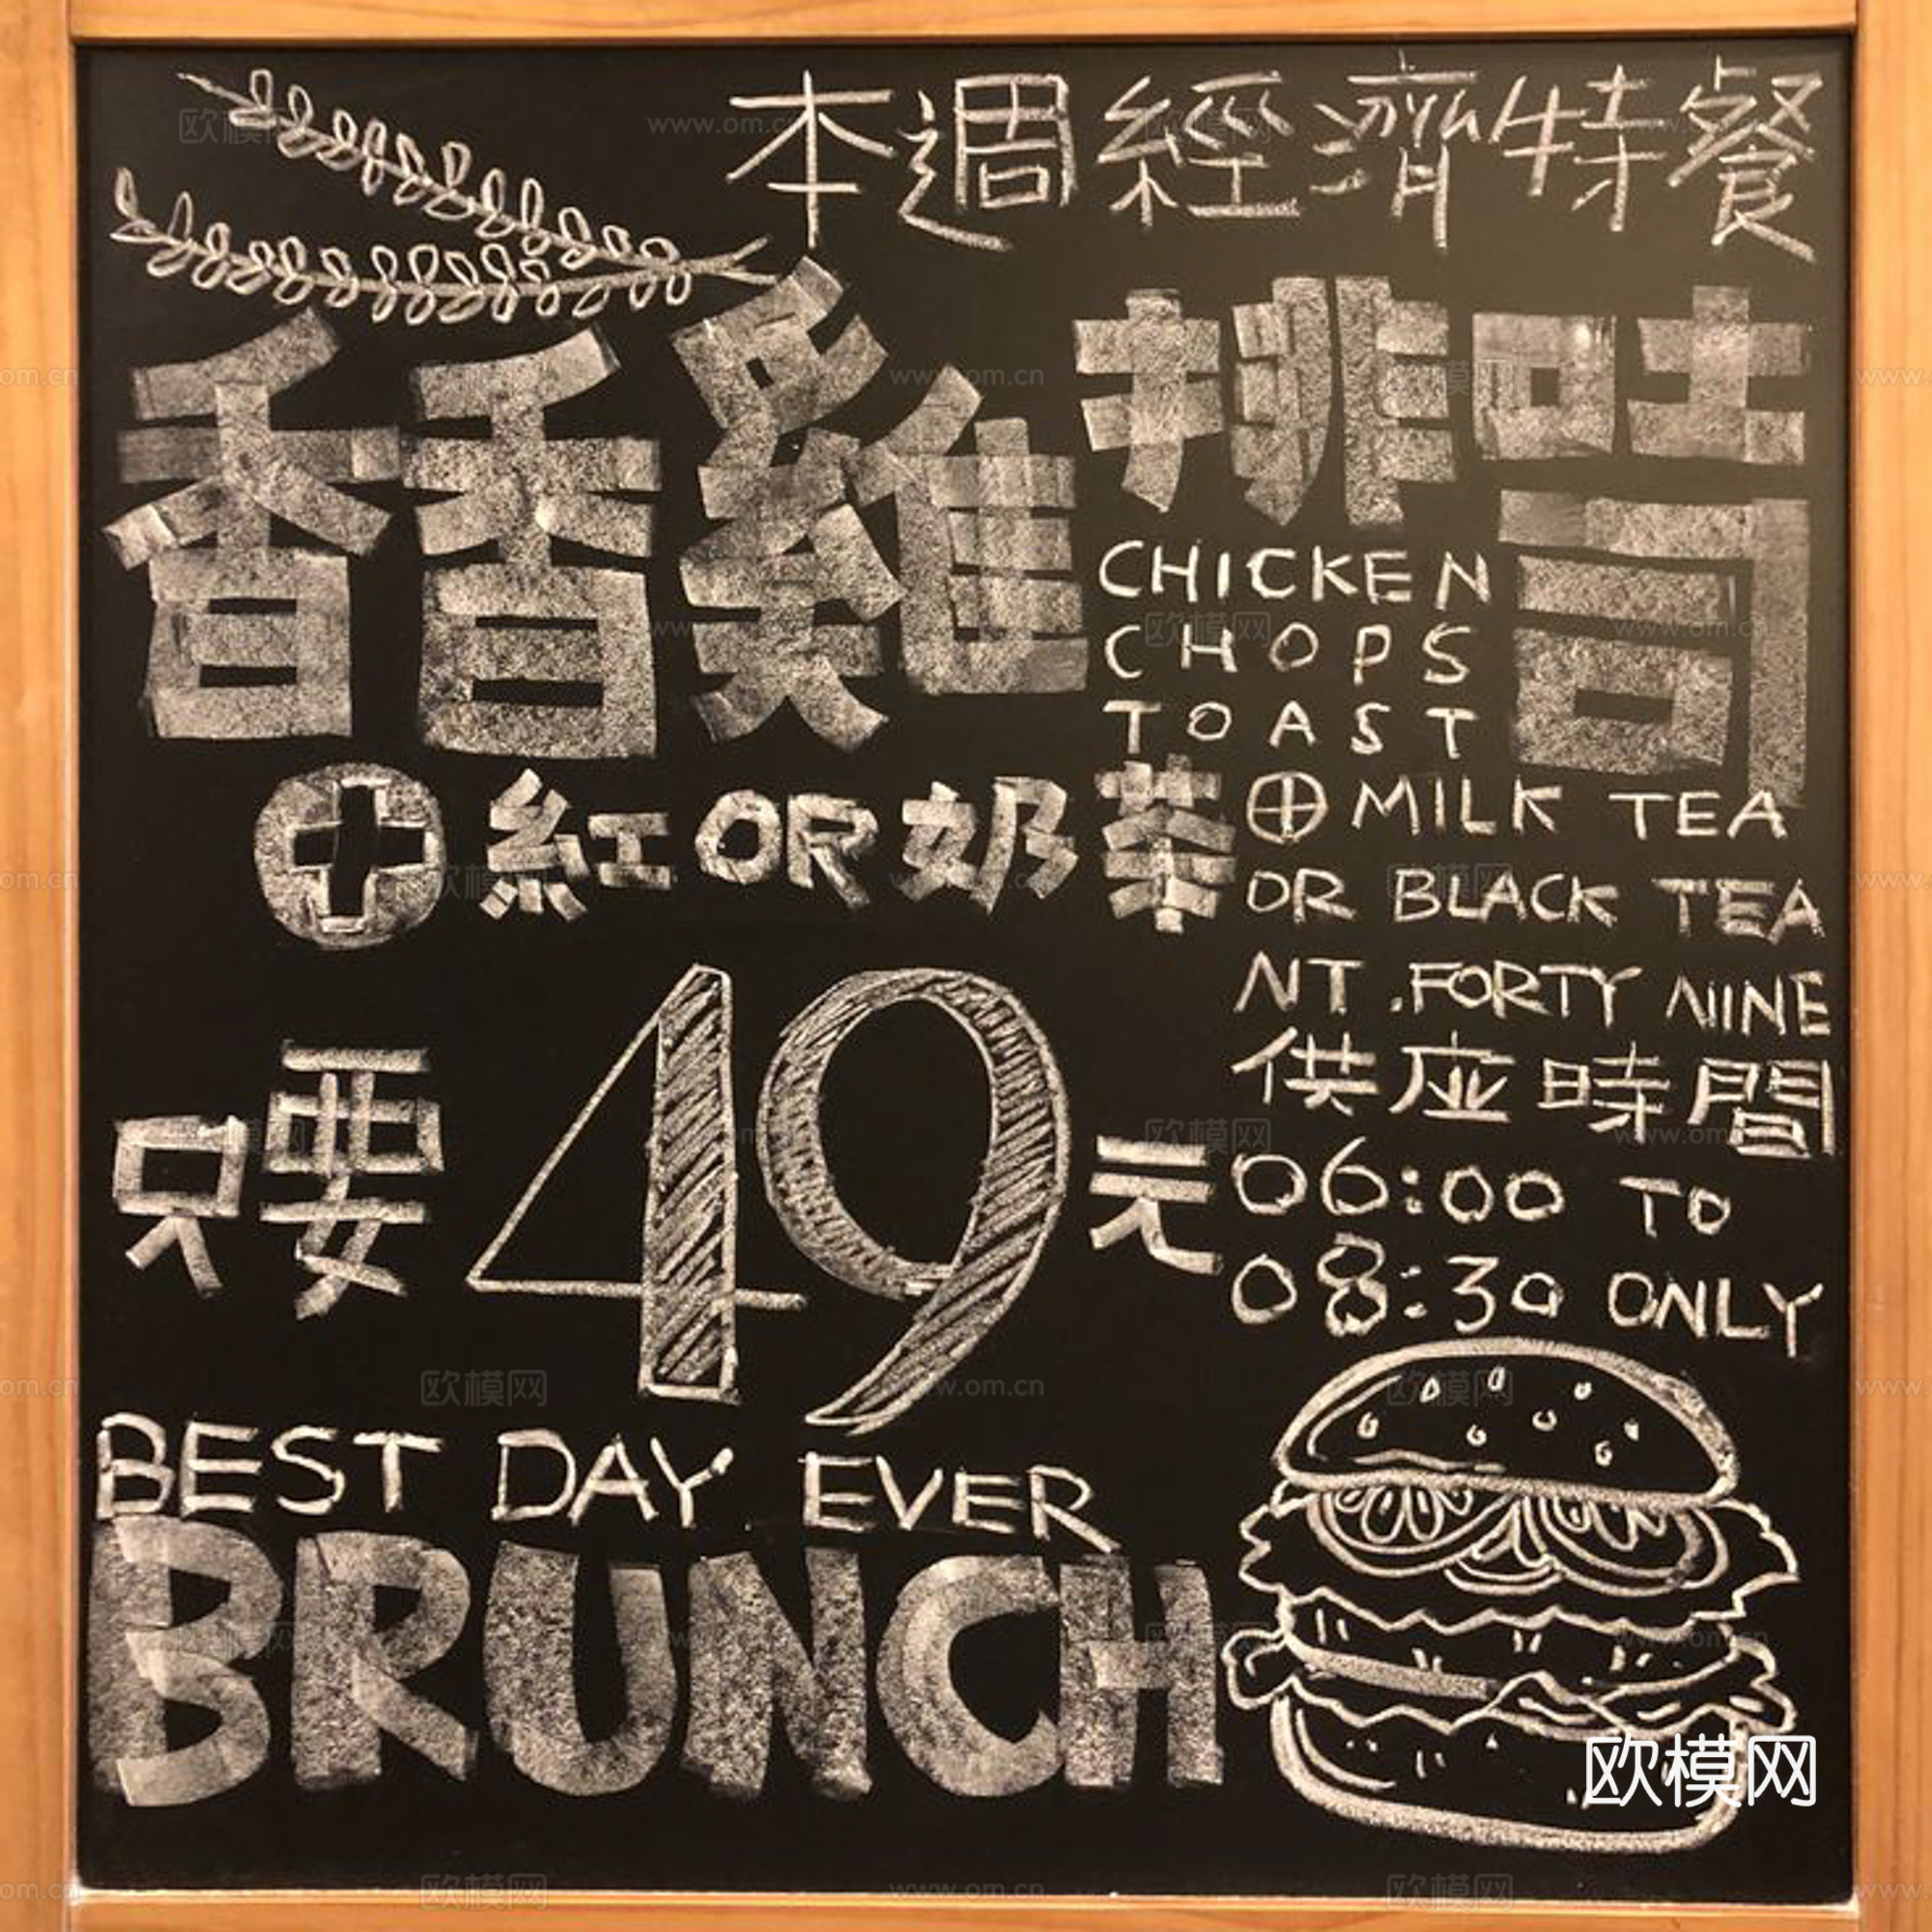 本週經濟特餐
香香雞排吐司
CHICKEN
CHOPS
TOAST
+紅OR奶茶
⊕MILK TEA
OR BLACK TEA
NT.FORTY NINE
只要49元
供应時間
06:00 TO
08:30 ONLY
BEST DAY EVER
BRUNCH
欧模网
www.om.cn